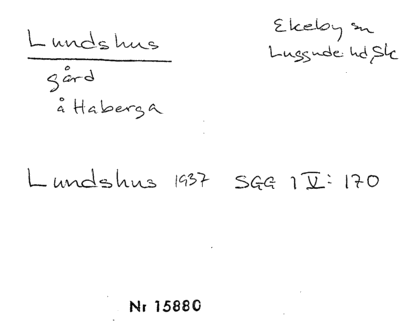 Lundshus
gård
å Haberga
Ekeby sn
Luggude hd, Sk
Lundshus 1937 SGG 1 V: 170
Nr 15880